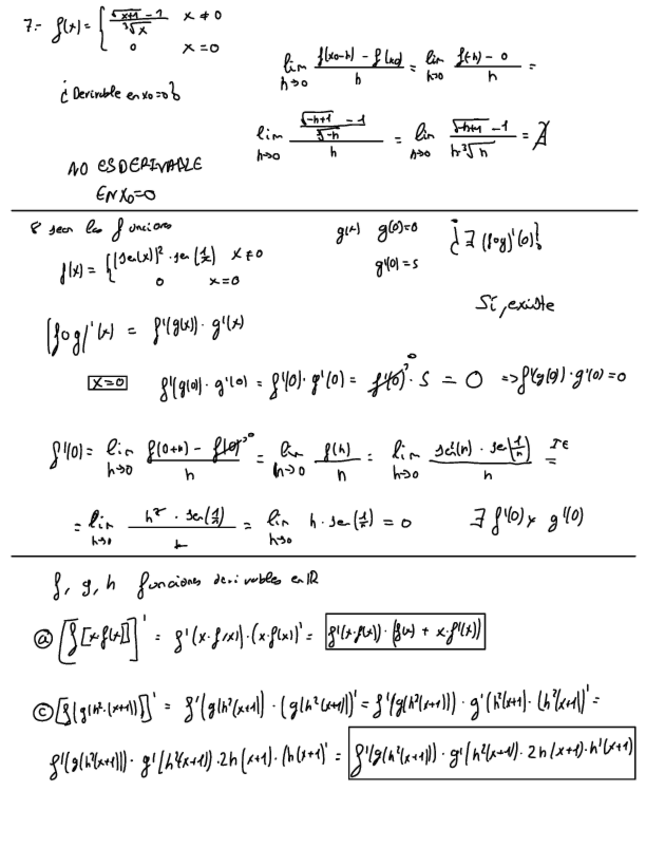 7.- f(x) = { (√(x+1) - 1)/∛x   x ≠ 0
0   x = 0
¿Derivable en x₀=0?
lim h→0 (f(x₀-h) - f(x₀))/h = lim h→0 (f(-h) - 0)/h =
lim h→0 ((√(-h+1) - 1)/∛(-h))/h = lim h→0 (√(-h+1) - 1)/(h·∛h) = ∄
NO ES DERIVABLE
EN X₀=0
8 sean las funciones
f(x) = { (sen(x))² · sen(1/x)   x ≠ 0
0   x=0
g(x)   g(0)=0
g'(0) = 5
¿∃ (fog)'(0)?
Sí, existe
(fog)'(x) = f'(g(x)) · g'(x)
x=0   f'(g(0)) · g'(0) = f'(0) · g'(0) = f'(0)⁰ · 5 = 0 => f'(g(0)) · g'(0) = 0
f'(0) = lim h→0 (f(0+h) - f(0)⁰)/h = lim h→0 f(h)/h = lim h→0 (sen²(h) · sen(1/h))/h = IE
= lim h→0 (h² · sen(1/h))/h = lim h→0 h · sen(1/h) = 0   ∃ f'(0) y g'(0)
f, g, h funciones derivables en ℝ
a [f[x·f(x)]]' = f'(x·f(x)) · (x·f(x))' = f'(x·f(x)) · (f(x) + x·f'(x))
c [f(g(h²·(x+1)))]' = f'(g(h²(x+1))) · (g(h²(x+1)))' = f'(g(h²(x+1))) · g'(h²(x+1)) · (h²(x+1))' =
f'(g(h²(x+1))) · g'(h²(x+1)) · 2h(x+1) · (h(x+1))' = f'(g(h²(x+1))) · g'(h²(x+1)) · 2h(x+1) · h'(x+1)